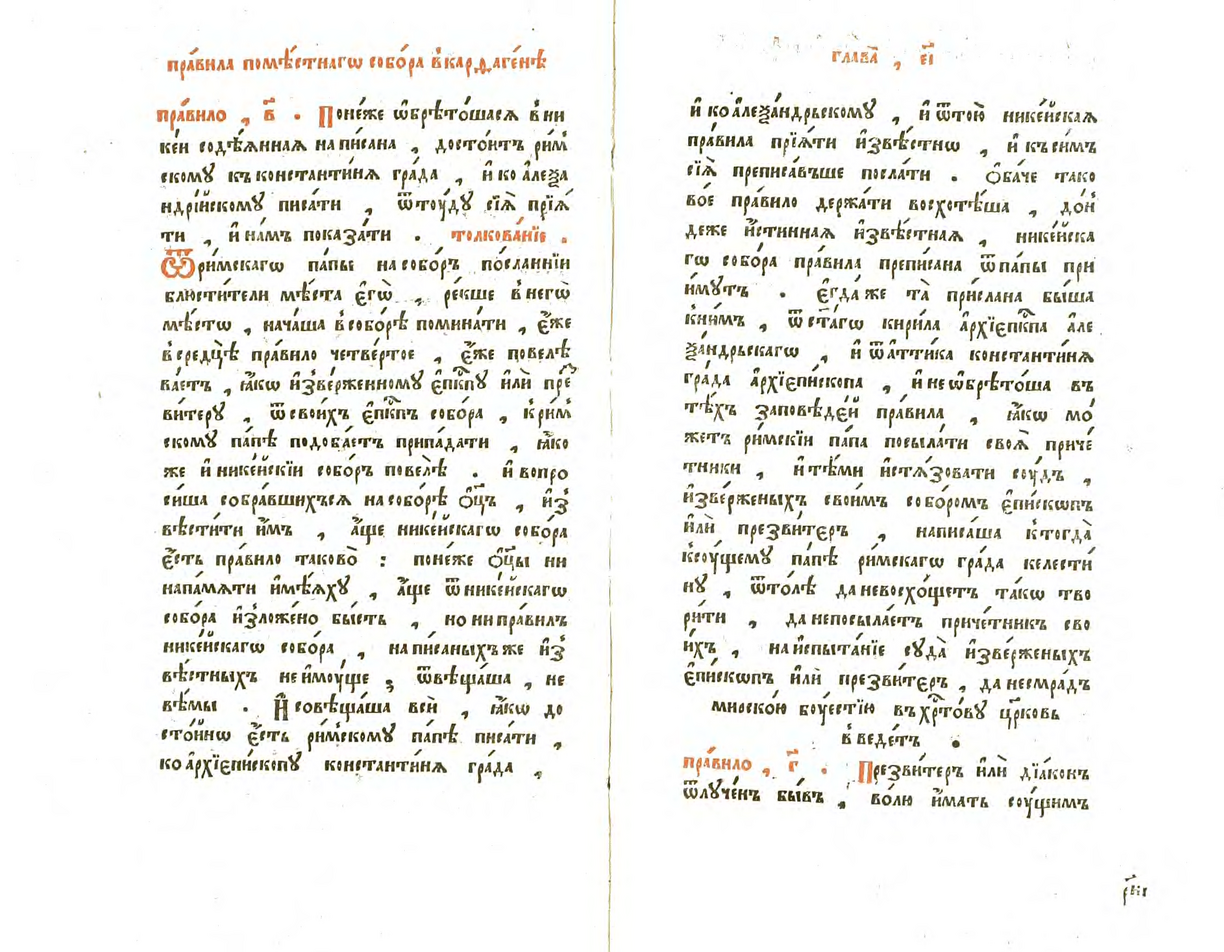 пра́вила помѣ́стнагѡ собо́ра в̾карѳаге́нѣ
пра́вило , в҃ . Поне́же ѡ҆брѣто́шася в̾ни
кеи содѣ́янная написана , досто́итъ ри́м
скому къконстанти́ня гра́да , и҆ коа҆леѯа
ндрі́искому писа́ти , ѿтоу́ду сія̀ прія́
ти , и҆на́мъ показа́ти . толкова́нїе .
Ѿри́мскагѡ па́пы насобо́ръ по́сланнїи
блюсти́тели мѣ́ста є҆гѡ̀ , ре́кше в̾негѡ̀
мѣ́стѡ , нача́ша в̾собо́рѣ помина́ти , є҆́же
в̾средцѣ̀ пра́вило четве́ртое , є҆́же повелѣ
ва́етъ , ꙗ҆́кѡ и҆зве́рженному є҆пⷭ҇кпꙋ и҆лѝ пре
ви́теру , ѿсвои́хъ є҆пⷭ҇кпъ собо́ра , к̾ри́м
скому па́пѣ подоба́етъ припа́дати , ꙗ҆́ко
же и҆нике́йскїи собо́ръ повелѣ̀ . и҆ вопро
си́ша собра́вшихъся насобо́рѣ ѻ҆ц҃ъ , и҆з̾
вѣсти́ти и҆̀мъ , а҆́ще нике́йскагѡ собо́ра
є҆́сть пра́вило таково̀ : поне́же ѻ҆ц҃ы ни
напа́мяти и҆мѣ́яхꙋ , а҆́ще ѿнике́йскагѡ
собо́ра и҆зложе́но бы́сть , но нипра́вилъ
нике́йскагѡ собо́ра , напи́саныхъже и҆з̾
вѣ́стныхъ неи҆моу́ще ; ѿвѣща́ша , не
вѣ́мы . И҆ совѣща́ша всѝ , ꙗ҆́кѡ до
сто́йнѡ є҆́сть ри́мскому па́пѣ писа́ти ,
коа҆рхїепи́скопꙋ константи́ня гра́да ,
глава̀ , є҃і
и҆ коа҆леѯа́ндрьскомꙋ , и҆ ѿтою̀ нике́йская
пра́вила прїя́ти и҆звѣ́стнѡ , и҆ къси́мъ
сїя̀ преписа́въше посла́ти . ѻ҆ба́че тако
во́е пра́вило держа́ти восхотѣ́ша , до́н̾
деже и҆́стинная и҆звѣ́стная , нике́йска
гѡ собо́ра пра́вила преписана ѿпа́пы при
и́мутъ . є҆гда́же та̀ при́слана бы́ша
к̾ни́мъ , ѿст҃а́гѡ кири́ла а҆рхїепⷭ҇кпа але
ѯа́ндрьскагѡ , и҆ ѿа҆тти́ка константи́ня
гра́да а҆рхїепи́скопа , и҆неѡ҆брѣто́ша въ
тѣ́хъ за́повѣдей пра́вила , ꙗ҆́кѡ мо́
жетъ ри́мскїи па́па посыла́ти своя̀ приче́
тники , и҆тѣ́ми и҆стязовати соу́дъ ,
и҆зве́рженыхъ свои́мъ собо́ромъ є҆пи́скѡпъ
и҆лѝ презви́теръ , написа́ша к̾тогда̀
к̾соу́щемꙋ па́пѣ ри́мскагѡ гра́да келести́
нꙋ , ѿто́лѣ даневосхо́щетъ та́кѡ тво
ри́ти , данепосыла́етъ приче́тникъ сво
и́хъ , наи҆спыта́нїе суда̀ и҆зве́рженыхъ
є҆пи́скѡпъ и҆лѝ презви́теръ , данесмра́дъ
мирско́ю боу́естїю въхрⷭ҇то́вꙋ цр҃ковь
в̾веде́тъ .
пра́вило , г҃ . Презви́теръ и҆лѝ дїа́конъ
ѿлꙋче́нъ бы́въ , во́лю и҆́мать соу́щимъ